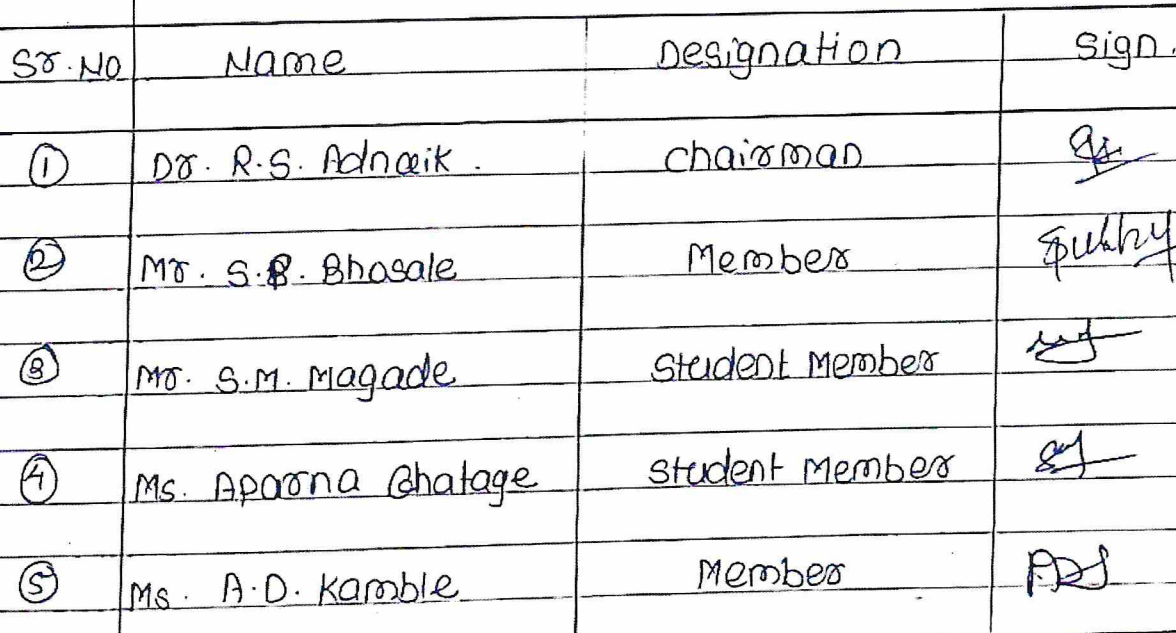 Sr.No Name Designation Sign.
1 Dr. R.S. Adnaik. Chairman
2 Mr. S.B. Bhosale Member
3 Mr. S.M. Magade Student Member
4 Ms. Aparna Ghatage Student Member
5 Ms. A.D. Kamble Member